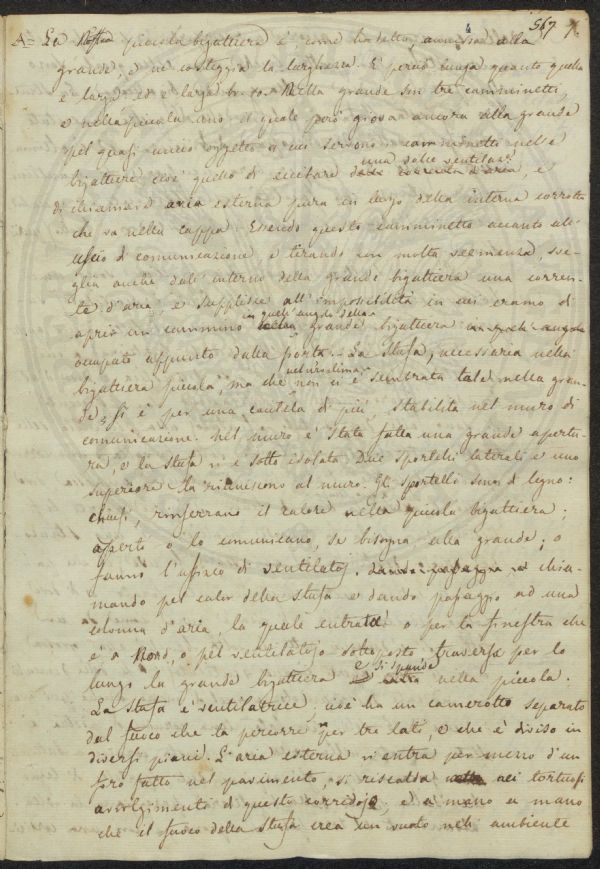 567
A= La Nostra piccola bigattiera è, come ha detto, annessa alla
grande, e ne costeggia la larghezza. È perciò lunga quanto quella
è larga ed è larga br. 10. Nella grande son tre camminetti,
e nella piccola uno il quale però giova ancora alla grande
pel quasi unico oggetto a cui servono i camminetti nelle
bigattiere cioè quello di eccitare una dolce ventilaz.e e
di chiamare aria esterna pura in luogo della interna corrotta
che va nella cappa. Essendo questo camminetto accanto all'
uscio di comunicazione e tirando con molta veemenza, sve-
glia anche dall'interno della grande bigattiera una corren-
te d'aria, e supplisce all'impossibilità in cui eramo di
aprir un cammino in quell'angolo della grande bigattiera
occupato appunto dalla porta. La Stufa, necessaria nella
bigattiera piccola, ma che non ci è sembrata tale nella gran-
de, si è per una cautela di più, stabilita nel muro di
comunicazione. Nel muro è stata fatta una grande apertu-
ra, e la stufa vi è sotto isolata. Due sportelli laterali e uno
superiore la riuniscono al muro. Gli sportelli sono di legno:
chiusi, rinserrano il calore nella piccola bigattiera;
aperti o lo comunicano, se bisogna alla grande; o
fanno l'ufizio di ventilatoj, chia-
mando pel calor della stufa e dando passaggio ad una
colonna d'aria, la quale entrata o per la finestra che
è a Nord, o pel ventilatojo sottoposto traversa per lo
lungo la grande bigattiera e si spande nella piccola.
La stufa è ventilatrice; cioè ha un camerotto separato
dal fuoco che la percorre per tre lati, e che è diviso in
diversi piani. L'aria esterna vi entra per mezzo d'un
foro fatto nel pavimento, si riscalda nei tortuosi
avvolgimenti di questo corridojo, e a mano a mano
che il fuoco della stufa crea un vuoto nell'ambiente